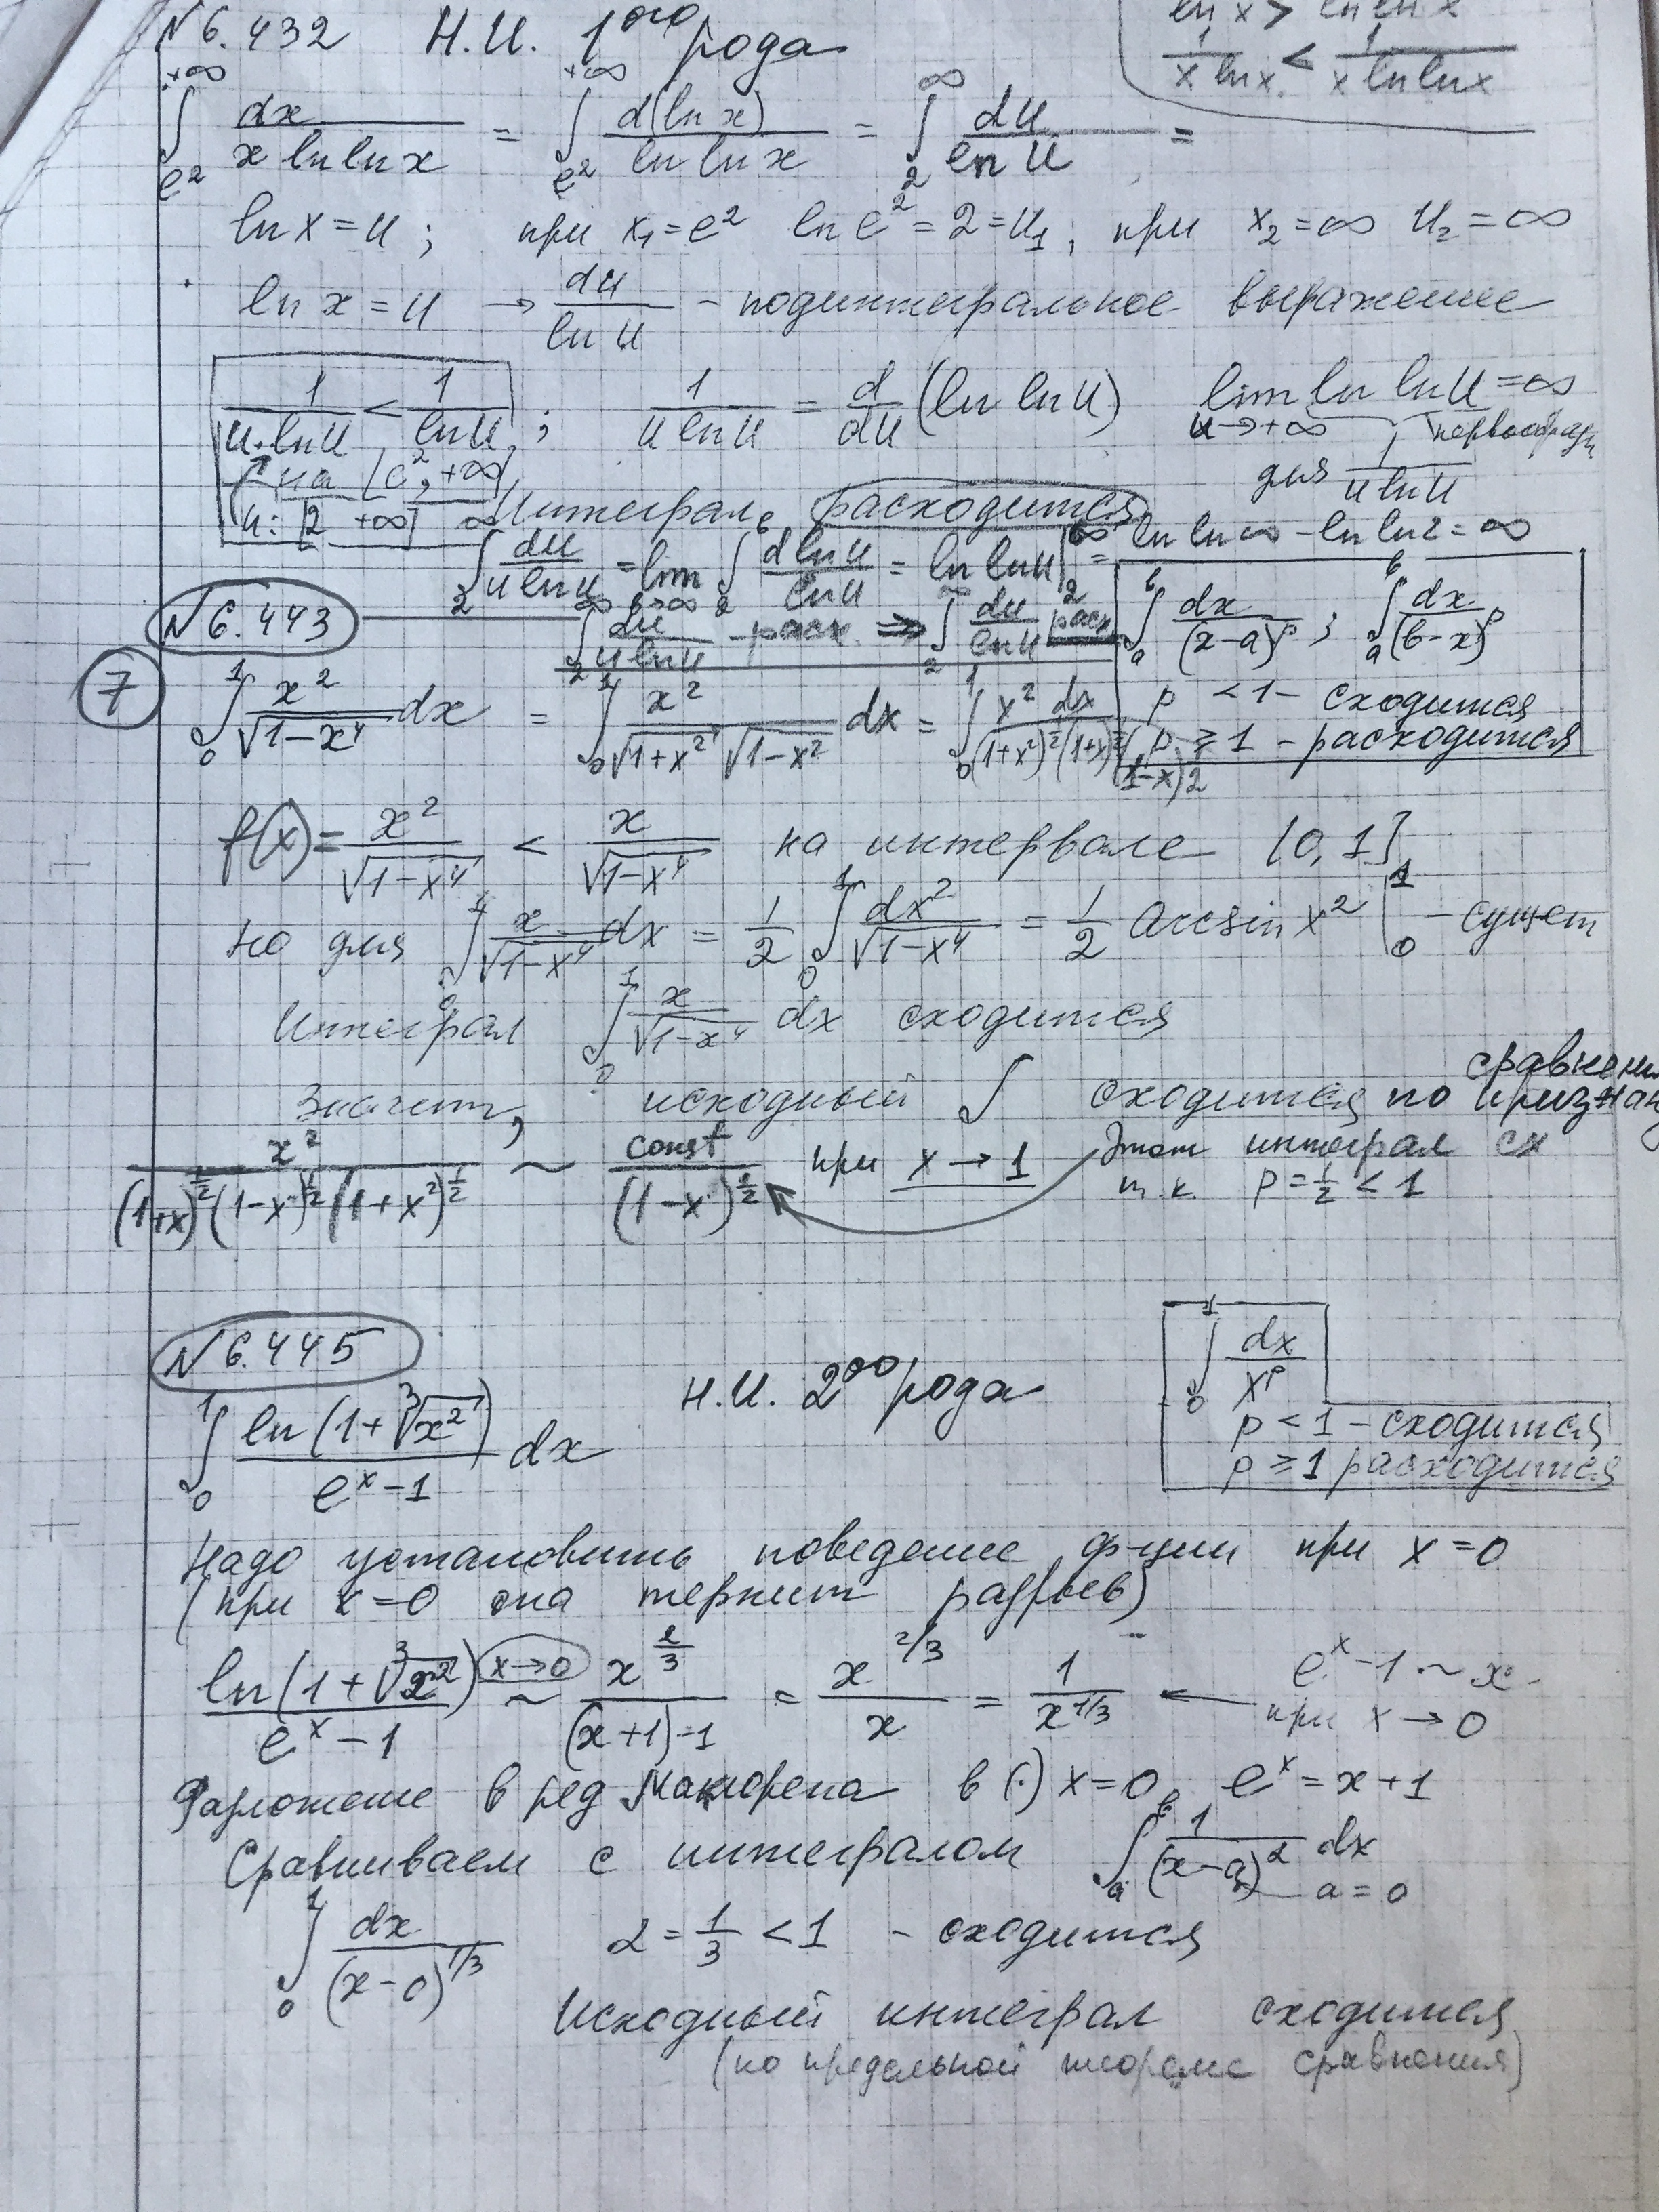 N 6.432 Н.И. 1ого рода
ln x > ln ln x
1/(x ln x) < 1/(x ln ln x)
∫_{e²}^{+∞} dx/(x ln ln x) = ∫_{e²}^{+∞} d(ln x)/(ln ln x) = ∫_2^∞ du/(ln u) =
ln x = u ; при x₁ = e² ln e² = 2 = u₁ , при x₂ = ∞ u₂ = ∞
ln x = u → du/(ln u) - подинтегральное выражение
1/(u·ln u) < 1/(ln u) ; 1/(u ln u) = d/du (ln ln u) lim_{u→+∞} ln ln u = ∞
на [e², +∞)
u: [2 +∞]
первообразн
для 1/(u ln u)
Интеграл расходится
∫_2^∞ du/(u ln u) = lim_{b→∞} ∫_2^b d ln u/(ln u) = ln ln u |_2^∞ = ln ln ∞ - ln ln 2 = ∞
∫_2^∞ du/(u ln u) - расх. ⇒ ∫_2^∞ du/(ln u) расх
N 6.443
∫_a^b dx/(x-a)^p ; ∫_a^b dx/(b-x)^p
p < 1 - сходится
p ≥ 1 - расходится
7
∫_0^1 x²/√(1-x⁴) dx = ∫_0^1 x²/(√(1+x²) √(1-x²)) dx = ∫_0^1 x² dx/((1+x²)^{1/2} (1+x)^{1/2} (1-x)^{1/2})
f(x) = x²/√(1-x⁴) < x/√(1-x⁴) на интервале [0, 1]
но для ∫_0^1 x/√(1-x⁴) dx = 1/2 ∫_0^1 dx²/√(1-x⁴) = 1/2 arcsin x² |_0^1 - сущет
Интеграл ∫_0^1 x/√(1-x⁴) dx сходится
Значит, исходный ∫ сходится по признак сравнени
x²/((1+x)^{1/2} (1-x)^{1/2} (1+x²)^{1/2}) ~ const/(1-x)^{1/2} при x → 1 Этот интеграл сх
т.к. p = 1/2 < 1
N 6.445
Н.И. 2ого рода
∫_0^1 dx/x^p
p < 1 - сходится
p ≥ 1 расходится
∫_0^1 ln(1+∛x²)/(e^x - 1) dx
Надо установить поведение ф-ции при x = 0
(при x = 0 она терпит разрыв)
ln(1+∛x²)/(e^x - 1) ~ (x→0) x^{2/3}/((x+1)-1) = x^{2/3}/x = 1/x^{1/3} ← e^x - 1 ~ x
при x → 0
Разложение в ряд Маклорена в (·) x = 0, e^x = x + 1
Сравниваем с интегралом ∫_a^b 1/(x-a)^α dx
a = 0
∫_0^1 dx/(x-0)^{1/3} α = 1/3 < 1 - сходится
Исходный интеграл сходится
(по предельной теореме сравнения)